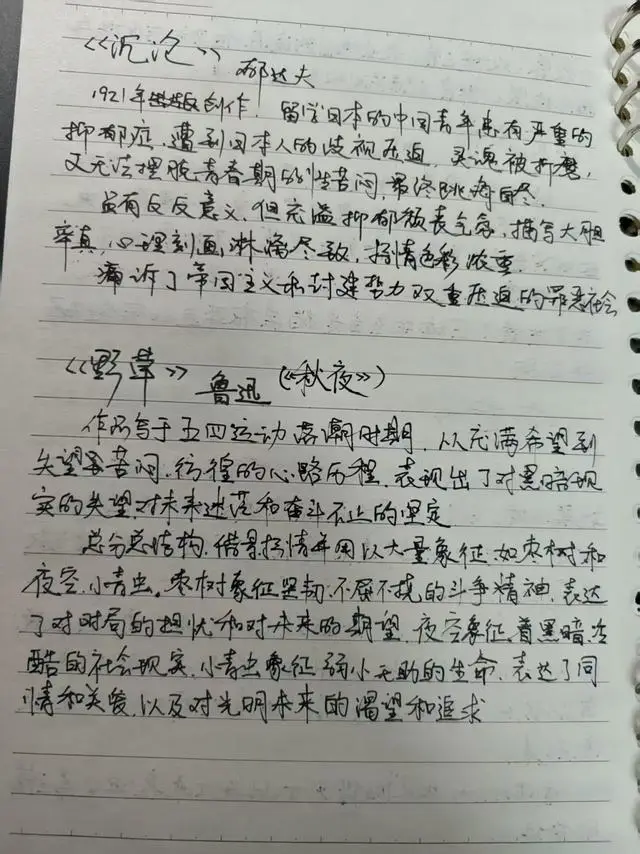 《沉沦》 郁达夫
1921年创作。留学日本的中国青年患有严重的
抑郁症,遭到日本人的歧视压迫,灵魂被折磨,
又无法摆脱青春期的性苦闷,最终跳海自尽。
虽有反反意义,但充溢抑郁颓丧气息,描写大胆
率真,心理刻画淋漓尽致,抒情色彩浓重。
痛诉了帝国主义和封建势力双重压迫的罪恶社会
《野草》 鲁迅 (《秋夜》)
作品写于五四运动落潮时期,从充满希望到
失望苦闷,彷徨的心路历程,表现出了对黑暗现
实的失望,对未来迷茫和奋斗不止的坚定
总分总结构,借景抒情并用以大量象征,如枣树和
夜空,小青虫。枣树象征坚韧,不屈不挠的斗争精神,表达
了对时局的担忧和对未来的期望,夜空象征着黑暗冷
酷的社会现实,小青虫象征弱小无助的生命,表达了同
情和关爱,以及对光明未来的渴望和追求